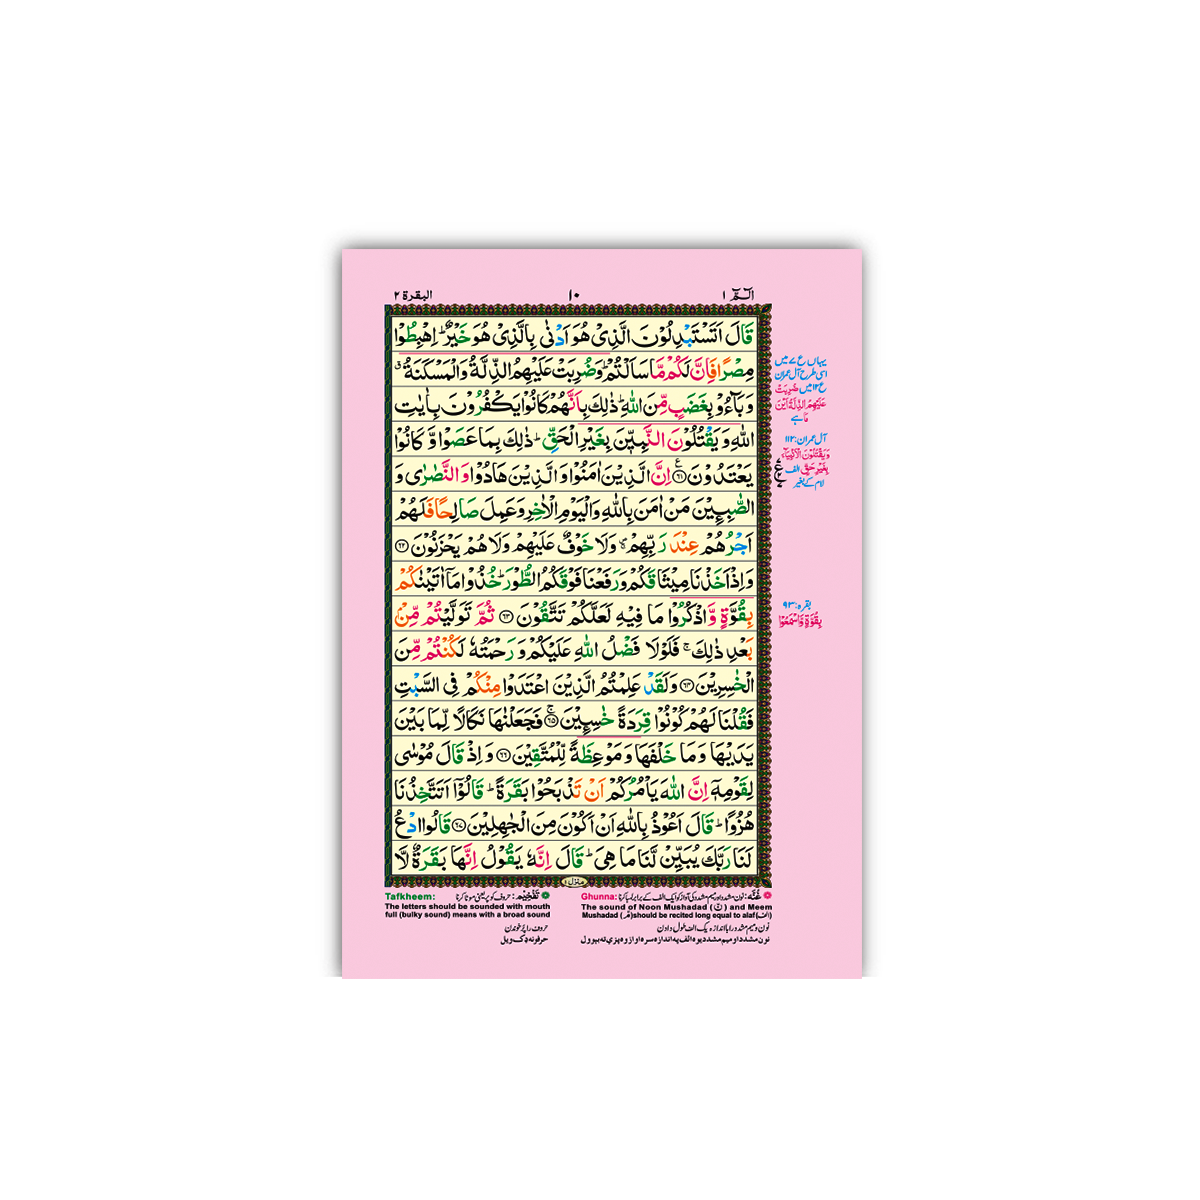 الٓـمّٓ ۱ ۱۰ البقرة ۲
قَالَ اَتَسْتَبْدِلُوْنَ الَّذِیْ هُوَ اَدْنٰی بِالَّذِیْ هُوَ خَیْرٌ ؕ اِهْبِطُوْا
مِصْرًا فَاِنَّ لَكُمْ مَّا سَاَلْتُمْ ؕ وَضُرِبَتْ عَلَیْهِمُ الذِّلَّةُ وَالْمَسْكَنَةُ ۗ
وَ بَآءُوْ بِغَضَبٍ مِّنَ اللّٰهِ ؕ ذٰلِكَ بِاَنَّهُمْ كَانُوْا یَكْفُرُوْنَ بِاٰیٰتِ
اللّٰهِ وَ یَقْتُلُوْنَ النَّبِیّٖنَ بِغَیْرِ الْحَقِّ ؕ ذٰلِكَ بِمَا عَصَوْا وَّ كَانُوْا
یَعْتَدُوْنَ ۶۱ اِنَّ الَّذِیْنَ اٰمَنُوْا وَ الَّذِیْنَ هَادُوْا وَ النَّصٰرٰی وَ
الصّٰبِـِٕیْنَ مَنْ اٰمَنَ بِاللّٰهِ وَالْیَوْمِ الْاٰخِرِ وَعَمِلَ صَالِحًا فَلَهُمْ
اَجْرُهُمْ عِنْدَ رَبِّهِمْ ۚ وَلَا خَوْفٌ عَلَیْهِمْ وَلَا هُمْ یَحْزَنُوْنَ ۶۲
وَاِذْ اَخَذْنَا مِیْثَاقَكُمْ وَرَفَعْنَا فَوْقَكُمُ الطُّوْرَ ؕ خُذُوْا مَاۤ اٰتَیْنٰكُمْ
بِقُوَّةٍ وَّاذْكُرُوْا مَا فِیْهِ لَعَلَّكُمْ تَتَّقُوْنَ ۶۳ ثُمَّ تَوَلَّیْتُمْ مِّنْۢ
بَعْدِ ذٰلِكَ ۚ فَلَوْلَا فَضْلُ اللّٰهِ عَلَیْكُمْ وَ رَحْمَتُهٗ لَكُنْتُمْ مِّنَ
الْخٰسِرِیْنَ ۶۴ وَلَقَدْ عَلِمْتُمُ الَّذِیْنَ اعْتَدَوْا مِنْكُمْ فِی السَّبْتِ
فَقُلْنَا لَهُمْ كُوْنُوْا قِرَدَةً خٰسِـِٕیْنَ ۚ ۶۵ فَجَعَلْنٰهَا نَكَالًا لِّمَا بَیْنَ
یَدَیْهَا وَ مَا خَلْفَهَا وَ مَوْعِظَةً لِّلْمُتَّقِیْنَ ۶۶ وَ اِذْ قَالَ مُوْسٰی
لِقَوْمِهٖۤ اِنَّ اللّٰهَ یَاْمُرُكُمْ اَنْ تَذْبَحُوْا بَقَرَةً ؕ قَالُوْۤا اَتَتَّخِذُنَا
هُزُوًا ؕ قَالَ اَعُوْذُ بِاللّٰهِ اَنْ اَكُوْنَ مِنَ الْجٰهِلِیْنَ ۶۷ قَالُوا ادْعُ
لَنَا رَبَّكَ یُبَیِّنْ لَّنَا مَا هِیَ ؕ قَالَ اِنَّهٗ یَقُوْلُ اِنَّهَا بَقَرَةٌ لَّا
منزل ۱
یہاں ع ۷ میں
اسی طرح آل عمران
ع ۱۲ میں ضُرِبَتْ
عَلَیْهِمُ الذِّلَّةُ اَیْنَ
مَا ہے
آل عمران: ۱۱۲
وَیَقْتُلُوْنَ الْاَنْبِیَآءَ
بِغَیْرِ حَقٍّ الف
لام کے بغیر
بقرہ: ۹۳
بِقُوَّةٍ وَّاسْمَعُوْا
غُنَّه: نون مشدد اور میم مشدد کی آواز کو ایک الف کے برابر لمبا کرنا
Ghunna:
The sound of Noon Mushadad (نّ) and Meem
Mushadad (مّ)should be recited long equal to alaf(الف)
نون و میم مشدد را با اندازہ یک الف طول دادن
نون مشدد او میم مشدد یوه الف په اندازه سره اواز وه پزې ته بېوول
تَفْخِیْم: حروف کو پُر یعنی موٹا کرنا
Tafkheem:
The letters should be sounded with mouth
full (bulky sound) means with a broad sound
حروف را پُر خوندن
حرفونه ډک ویل